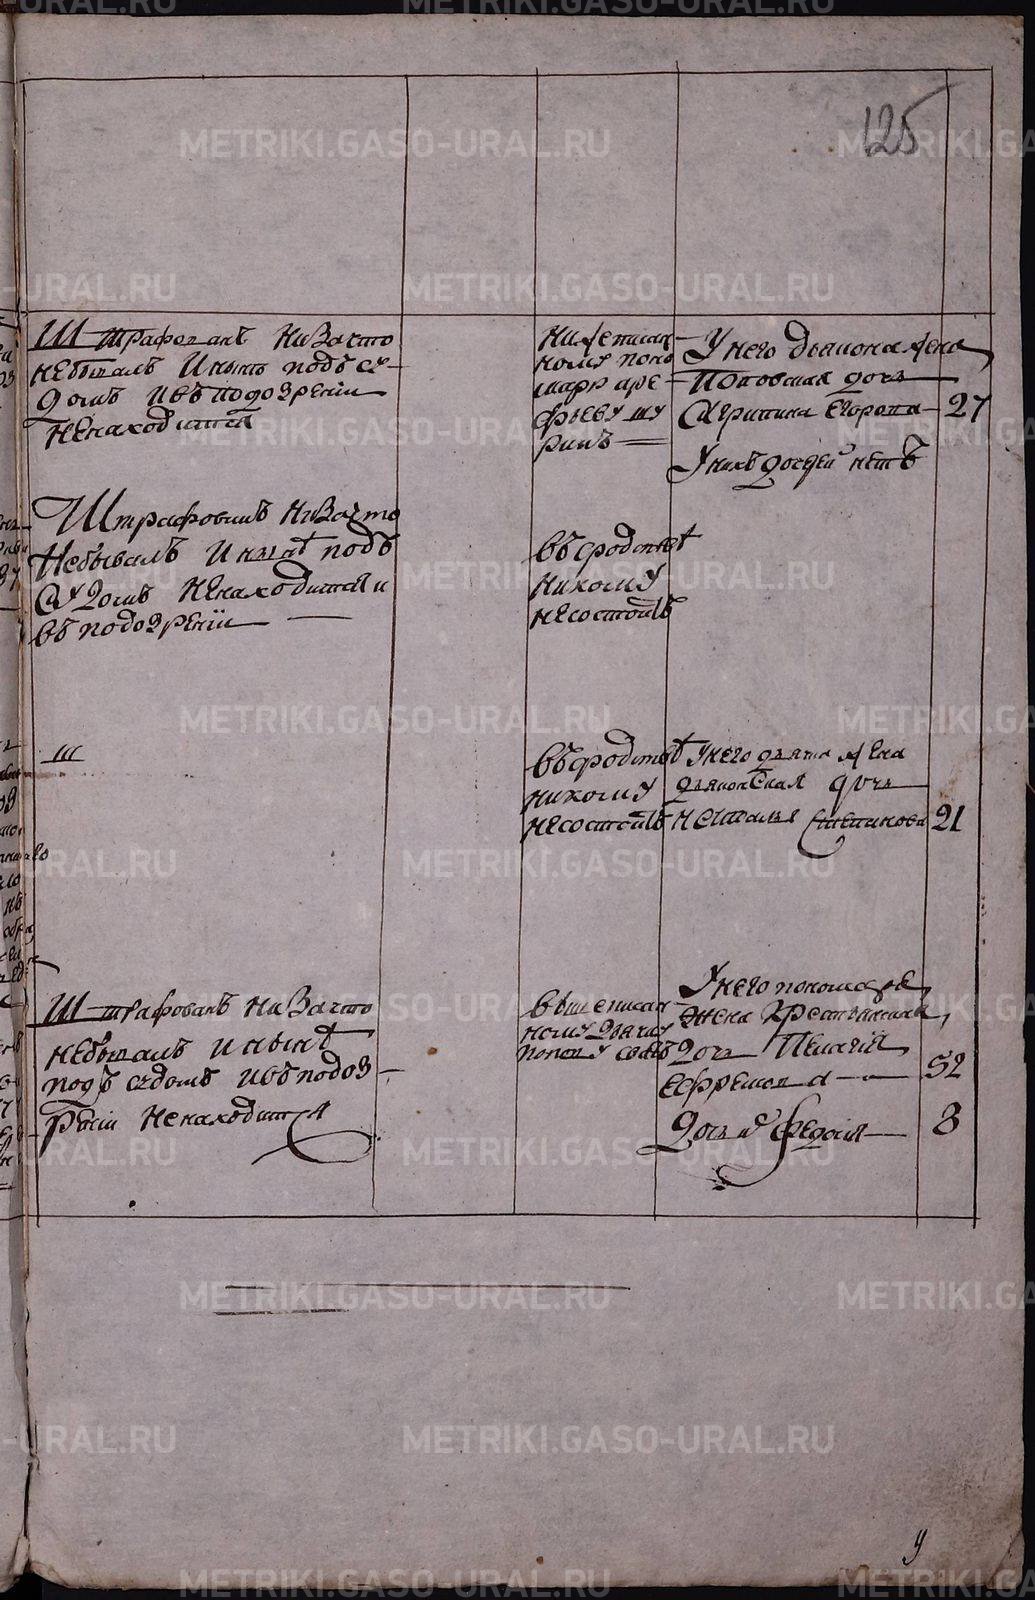 125
Штрафованъ низачто
небывалъ Инынѣ подъ су-
домъ ивъ подозрѣнiи
ненаходится
номŸ поно
марю
фьевŸ шŸ
ринъ
У него дьякона жена
Поповская дочь
Агрипина Егорова 27
У нихъ дѣтей нетъ
Штрафованъ низачто
небывалъ Инынѣ подъ
сŸдомъ ненаходится и
въ подозренiи
въ родствѣ
никомŸ
несостоитъ
въ родствѣ
никомŸ
несостоитъ
У него дьячка жена
дьяконская дочь
Наталья Степанова 21
Штрафованъ низачто
небывалъ инынѣ
подъ судомъ ивъ подоз-
ренiи ненаходится
вышеписан-
номŸ дьячкŸ
У него пономаря
жена крестьянская
дочь Пелагiя
Ефремова 52
дочь Федосiя 8
METRIKI.GASO-URAL.RU